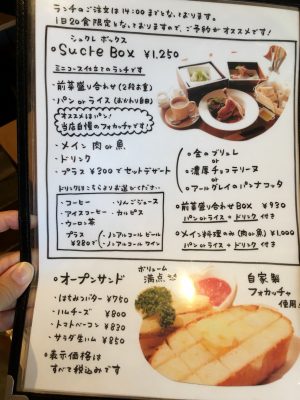 ランチのご注文は14:00までとなっております。
1日20食限定となっておりますので、ご予約がオススメです!
シュクレ ボックス
Sucre Box ¥1,250
ミニコース仕立てのランチです
・前菜盛り合わせ(2段お重)
・パン or ライス(おかわり自由)
オススメはパン!
当店自慢のフォカッチャです!
・メイン 肉 or 魚
・ドリンク
・プラス ¥300でセットデザート
ドリンクはこちらよりお選びください
・コーヒー
・りんごジュース
・アイスコーヒー
・カルピス
・ウーロン茶
プラス
¥280で
・ノンアルコール ビール
・ノンアルコール ワイン
・金のブリュレ
or
・濃厚チョコテリーヌ
or
・アールグレイのパンナコッタ
前菜盛り合わせBOX ¥930
パン or ライス + ドリンク 付き
メイン料理のみ(肉 or 魚) ¥1,000
パン or ライス + ドリンク 付き
オープンサンド
ボリューム
満点
・はちみつバター ¥750
・ハムチーズ ¥800
・トマトベーコン ¥830
・サラダ生ハム ¥850
表示価格は
すべて税込みです
自家製
フォカッチャ
使用